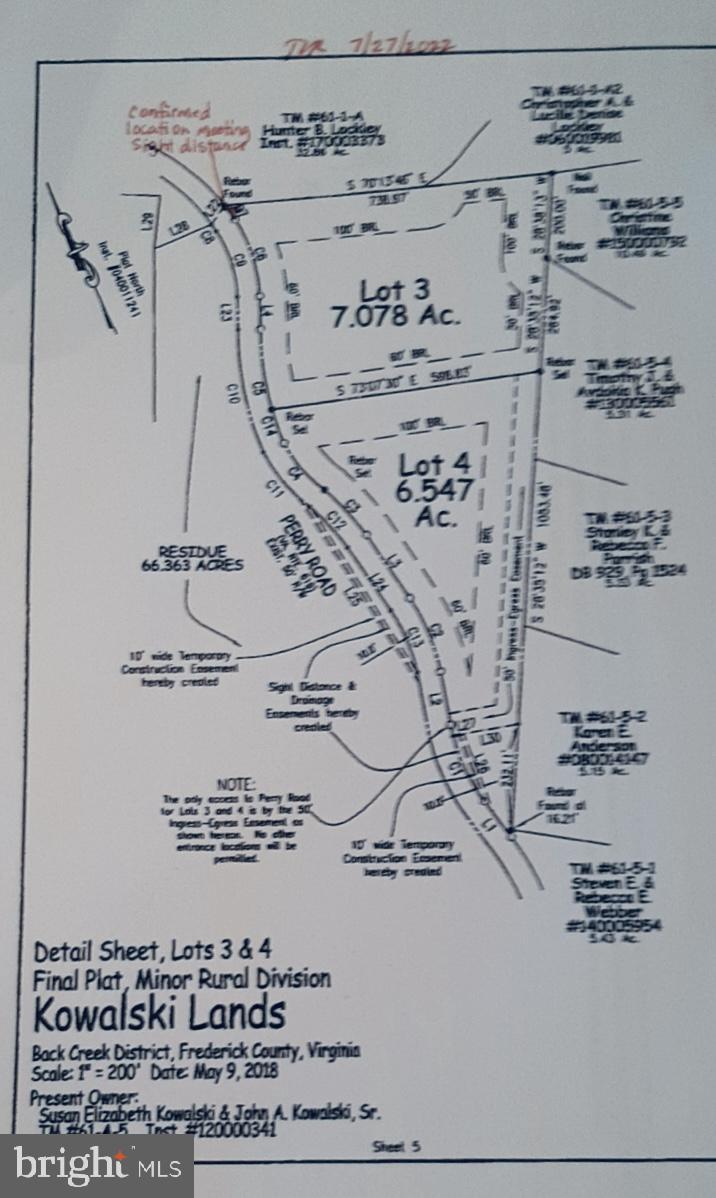 TVR 7/27/2022
Confirmed
location meeting
Sight distance
TM #61-1-A
Hunter B. Lockley
Inst. #170003373
32.86 Ac.
TM #61-1-A2
Christopher A. &
Lucille Denise
Lockley
#060019981
5 Ac.
Rebar
Found
S 70°13'46" E
738.97'
50' BRL
Found
TM #61-5-5
Christine
Williams
#150000792
10.46 Ac.
L29
L28
C8
Plat North
Inst. #040011241
C9
C6
L4
L23
100' BRL
60' BRL
100' BRL
50' BRL
S 28°38'13" W
200.00'
Rebar
Found
S 28°35'12" W
264.92'
Lot 3
7.078 Ac.
60' BRL
S 73°07'30" E 598.83'
Rebar
Set
TM #61-5-4
Timothy J. &
#130009561
5.31 Ac.
C10
C5
C14
Rebar
Set
100' BRL
Rebar
Set
Lot 4
6.547
Ac.
C4
C11
C3
C12
L3
PERRY ROAD
60' BRL
50' Ingress-Egress Easement
S 28°35'12" W 1083.48'
TM #61-5-3
Stanley K. &
Rebecca F.
Parrish
DB 929, Pg 1524
5.13 Ac.
RESIDUE
66.363 ACRES
L24
L25
C13
C2
L2
60' BRL
10' wide Temporary
Construction Easement
hereby created
Sight Distance &
Drainage
Easements hereby
created
L27
L30
TM #61-5-2
Karen E.
Anderson
#080014147
5.15 Ac.
C1
232.11'
L1
NOTE:
The only access to Perry Road
for Lots 3 and 4 is by the 50'
Ingress-Egress Easement as
shown hereon. No other
entrance locations will be
permitted.
10' wide Temporary
Construction Easement
hereby created
Rebar
Found at
16.21'
TM #61-5-1
Steven E. &
Rebecca E.
Webber
#140005954
5.43 Ac.
Detail Sheet, Lots 3 & 4
Final Plat, Minor Rural Division
Kowalski Lands
Back Creek District, Frederick County, Virginia
Scale: 1" = 200' Date: May 9, 2018
Present Owner:
Susan Elizabeth Kowalski & John A. Kowalski, Sr.
TM #61-A-5 Inst. #120000341
Sheet 5
bright MLS